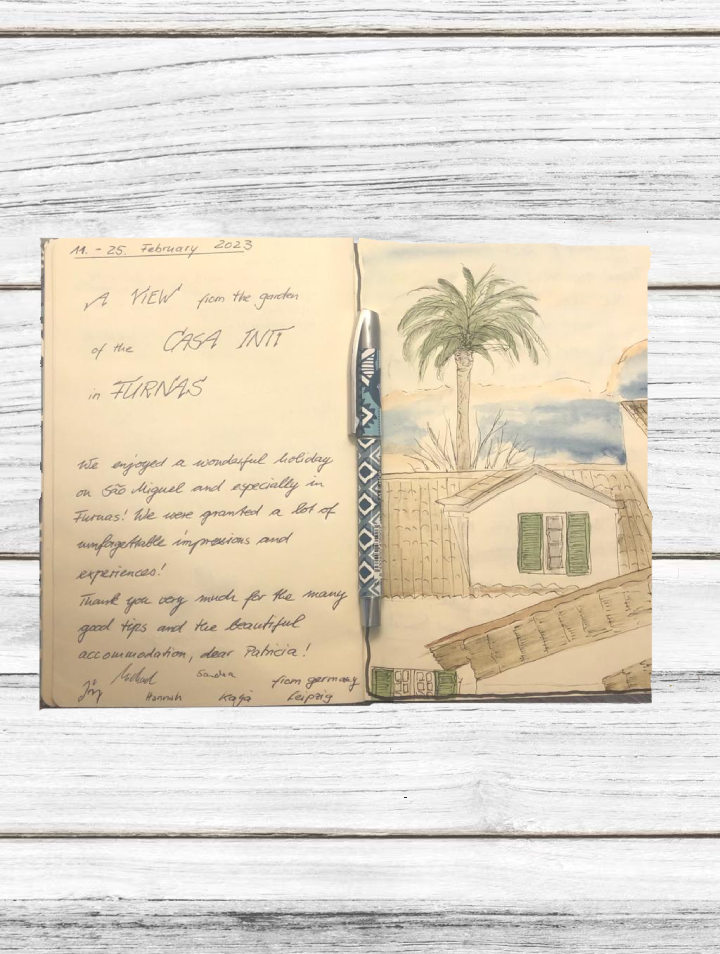 11. - 25. February 2023
A VIEW from the garden
of the CASA INTI
in FURNAS
We enjoyed a wonderful holiday
on São Miguel and especially in
Furnas! We were granted a lot of
unforgettable impressions and
experiences!
Thank you very much for the many
good tips and the beautiful
accommodation, dear Patricia!
Sandra from germany
Jörg Hannah Katja Leipzig